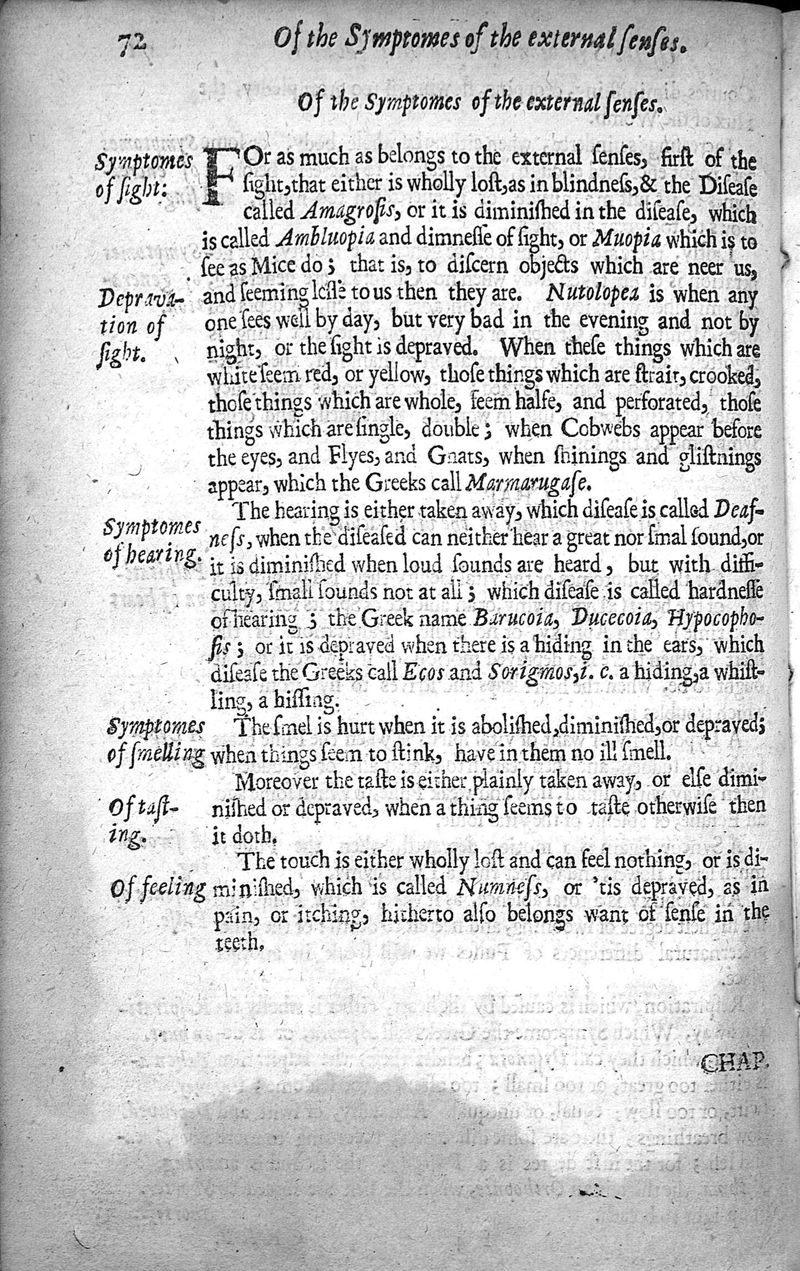 72 Of the Symptomes of the external ſenſes.
Of the Symptomes of the external ſenſes.
Symptomes of ſight:
FOr as much as belongs to the external ſenſes, firſt of the
ſight, that either is wholly loſt, as in blindneſs, & the Diſeaſe
called Amagroſis, or it is diminiſhed in the diſeaſe, which
is called Ambluopia and dimneſſe of ſight, or Muopia which is to
ſee as Mice do; that is, to diſcern objects which are neer us,
Deprava-
tion of
ſight.
and ſeeming leſſe to us then they are. Nutolopea is when any
one ſees well by day, but very bad in the evening and not by
night, or the ſight is depraved. When theſe things which are
white ſeem red, or yellow, thoſe things which are ſtrait, crooked,
thoſe things which are whole, ſeem halfe, and perforated, thoſe
things which are ſingle, double; when Cobwebs appear before
the eyes, and Flyes, and Gnats, when ſhinings and gliſtnings
appear, which the Greeks call Marmarugaſe.
Symptomes
of hearing.
The hearing is either taken away, which diſeaſe is called Deaf-
neſs, when the diſeaſed can neither hear a great nor ſmal ſound, or
it is diminiſhed when loud ſounds are heard, but with diffi-
culty, ſmall ſounds not at all; which diſeaſe is called hardneſſe
of hearing; the Greek name Barucoia, Ducecoia, Hypocopho-
ſis; or it is depraved when there is a hiding in the ears, which
diſeaſe the Greeks call Ecos and Sorigmos, i. c. a hiding, a whiſt-
ling, a hiſſing.
Symptomes
of ſmelling
The ſmel is hurt when it is aboliſhed, diminiſhed, or depraved;
when things ſeem to ſtink, have in them no ill ſmell.
Of taſt-
ing.
Moreover the taſte is either plainly taken away, or elſe dimi-
niſhed or depraved, when a thing ſeems to taſte otherwiſe then
it doth.
Of feeling
The touch is either wholly loſt and can feel nothing, or is di-
miniſhed, which is called Numneſs, or 'tis depraved, as in
pain, or itching, hitherto alſo belongs want of ſenſe in the
teeth.
CHAP.